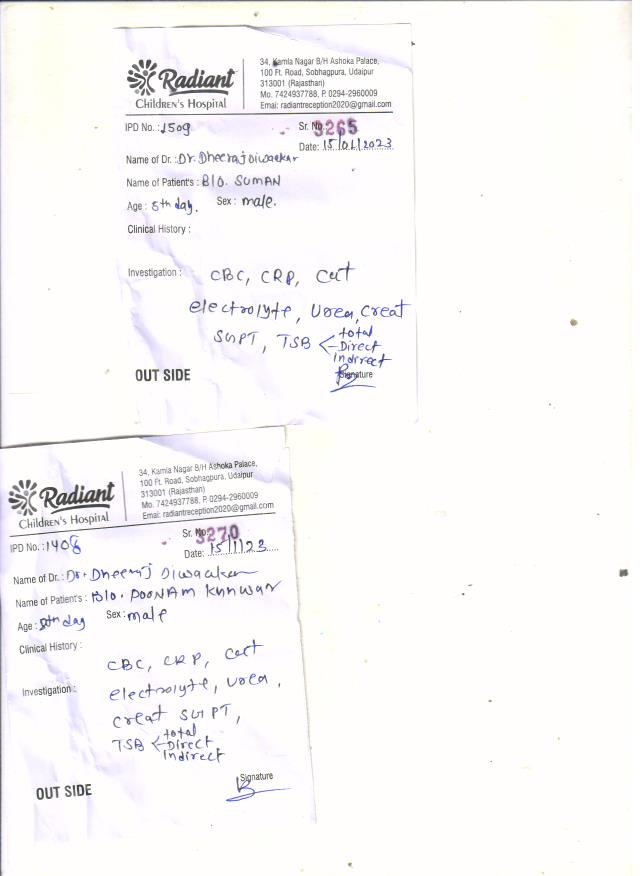 Radiant
CHILDREN'S HOSPITAL
34, Kamla Nagar B/H Ashoka Palace,
100 Ft. Road, Sobhagpura, Udaipur
313001 (Rajasthan)
Mo. 7424937788, P. 0294-2960009
Emai: radiantreception2020@gmail.com
IPD No. : 1509
Sr. No. 3265
Date: 15/01/2023
Name of Dr. : Dr. Dheeraj Diwaakar
Name of Patient's : B/O. SUMAN
Age : 5th day. Sex : male.
Clinical History :
Investigation : CBC, CRP,
electrolyte, Urea, Creat
SGPT, TSB < total
Direct
Indirect
OUT SIDE
Signature
Radiant
CHILDREN'S HOSPITAL
34, Kamla Nagar B/H Ashoka Palace,
100 Ft. Road, Sobhagpura, Udaipur
313001 (Rajasthan)
Mo. 7424937788, P. 0294-2960009
Emai: radiantreception2020@gmail.com
IPD No. : 1408
Sr. No. 3270
Date: 15/1/23
Name of Dr. : Dr. Dheeraj Diwaakar
Name of Patient's : B/o. POONAM Kunwar
Age : day Sex : male
Clinical History :
CBC, CRP,
Investigation : electrolyte, Urea,
Creat SGPT,
TSB < total
Direct
Indirect
Signature
OUT SIDE